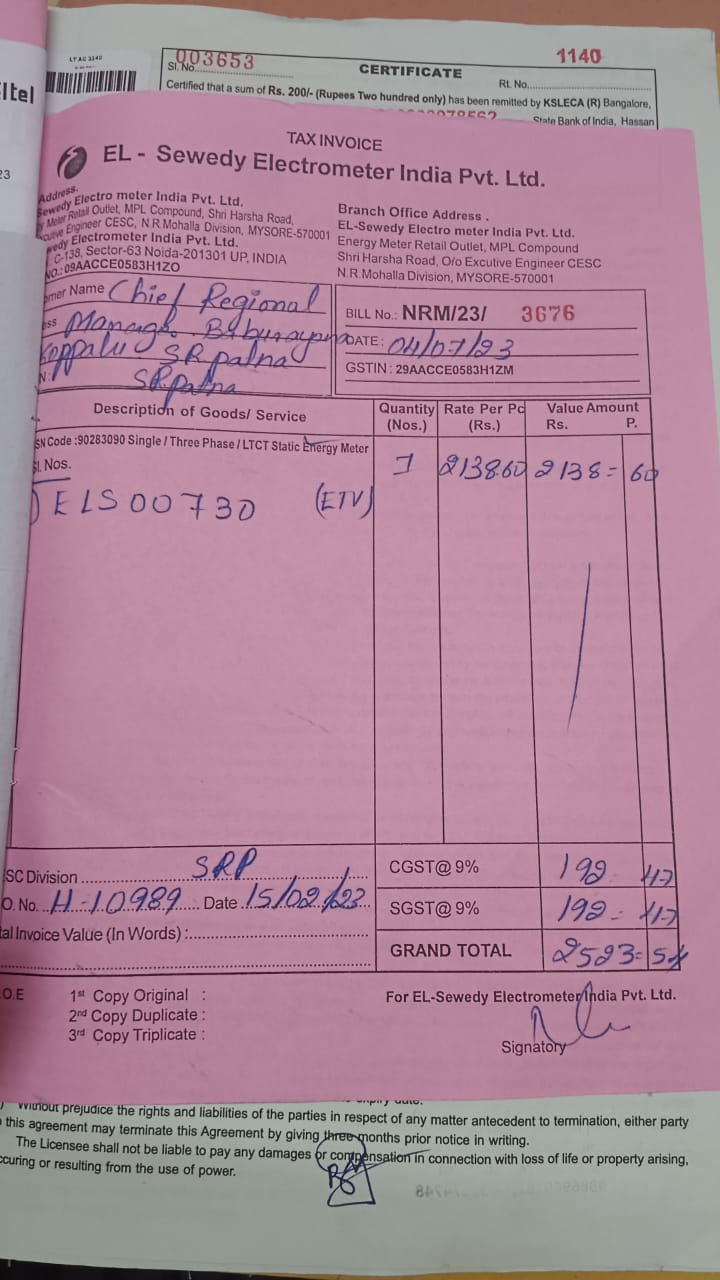 ltel
23
LT AC 1140
003653
1140
Sl. No.
CERTIFICATE
Rt. No.
Certified that a sum of Rs. 200/- (Rupees Two hundred only) has been remitted by KSLECA (R) Bangalore,
State Bank of India, Hassan
TAX INVOICE
EL - Sewedy Electrometer India Pvt. Ltd.
Address.
Sewedy Electro meter India Pvt. Ltd.
Meter Retail Outlet, MPL Compound, Shri Harsha Road,
cutive Engineer CESC, N.R.Mohalla Division, MYSORE-570001
wedy Electrometer India Pvt. Ltd.
C-138, Sector-63 Noida-201301 UP, INDIA
NO.: 09AACCE0583H1ZO
Branch Office Address .
EL-Sewedy Electro meter India Pvt. Ltd.
Energy Meter Retail Outlet, MPL Compound
Shri Harsha Road, O/o Excutive Engineer CESC
N.R.Mohalla Division, MYSORE-570001
omer Name Chief Regional
ess Manager Baburaypna
Koppalu SR patna
N: SR patna
BILL No.: NRM/23/ 3676
DATE: 04/07/23
GSTIN : 29AACCE0583H1ZM
Description of Goods/ Service
Quantity (Nos.)
Rate Per Pc (Rs.)
Value Amount Rs. P.
SN Code :90283090 Single / Three Phase / LTCT Static Energy Meter
Sl. Nos.
1 2138.60 2138= 60
1) ELS00730 (ETV)
SC Division SRP
O. No. H-10989 Date 15/02/23
tal Invoice Value (In Words) :
CGST@ 9% 192 47
SGST@ 9% 192 47
GRAND TOTAL 2523= 54
O.E 1st Copy Original :
2nd Copy Duplicate :
3rd Copy Triplicate :
For EL-Sewedy Electrometer India Pvt. Ltd.
Signatory
expiry date.
Without prejudice the rights and liabilities of the parties in respect of any matter antecedent to termination, either party
this agreement may terminate this Agreement by giving three months prior notice in writing.
The Licensee shall not be liable to pay any damages or compensation in connection with loss of life or property arising,
ccuring or resulting from the use of power.